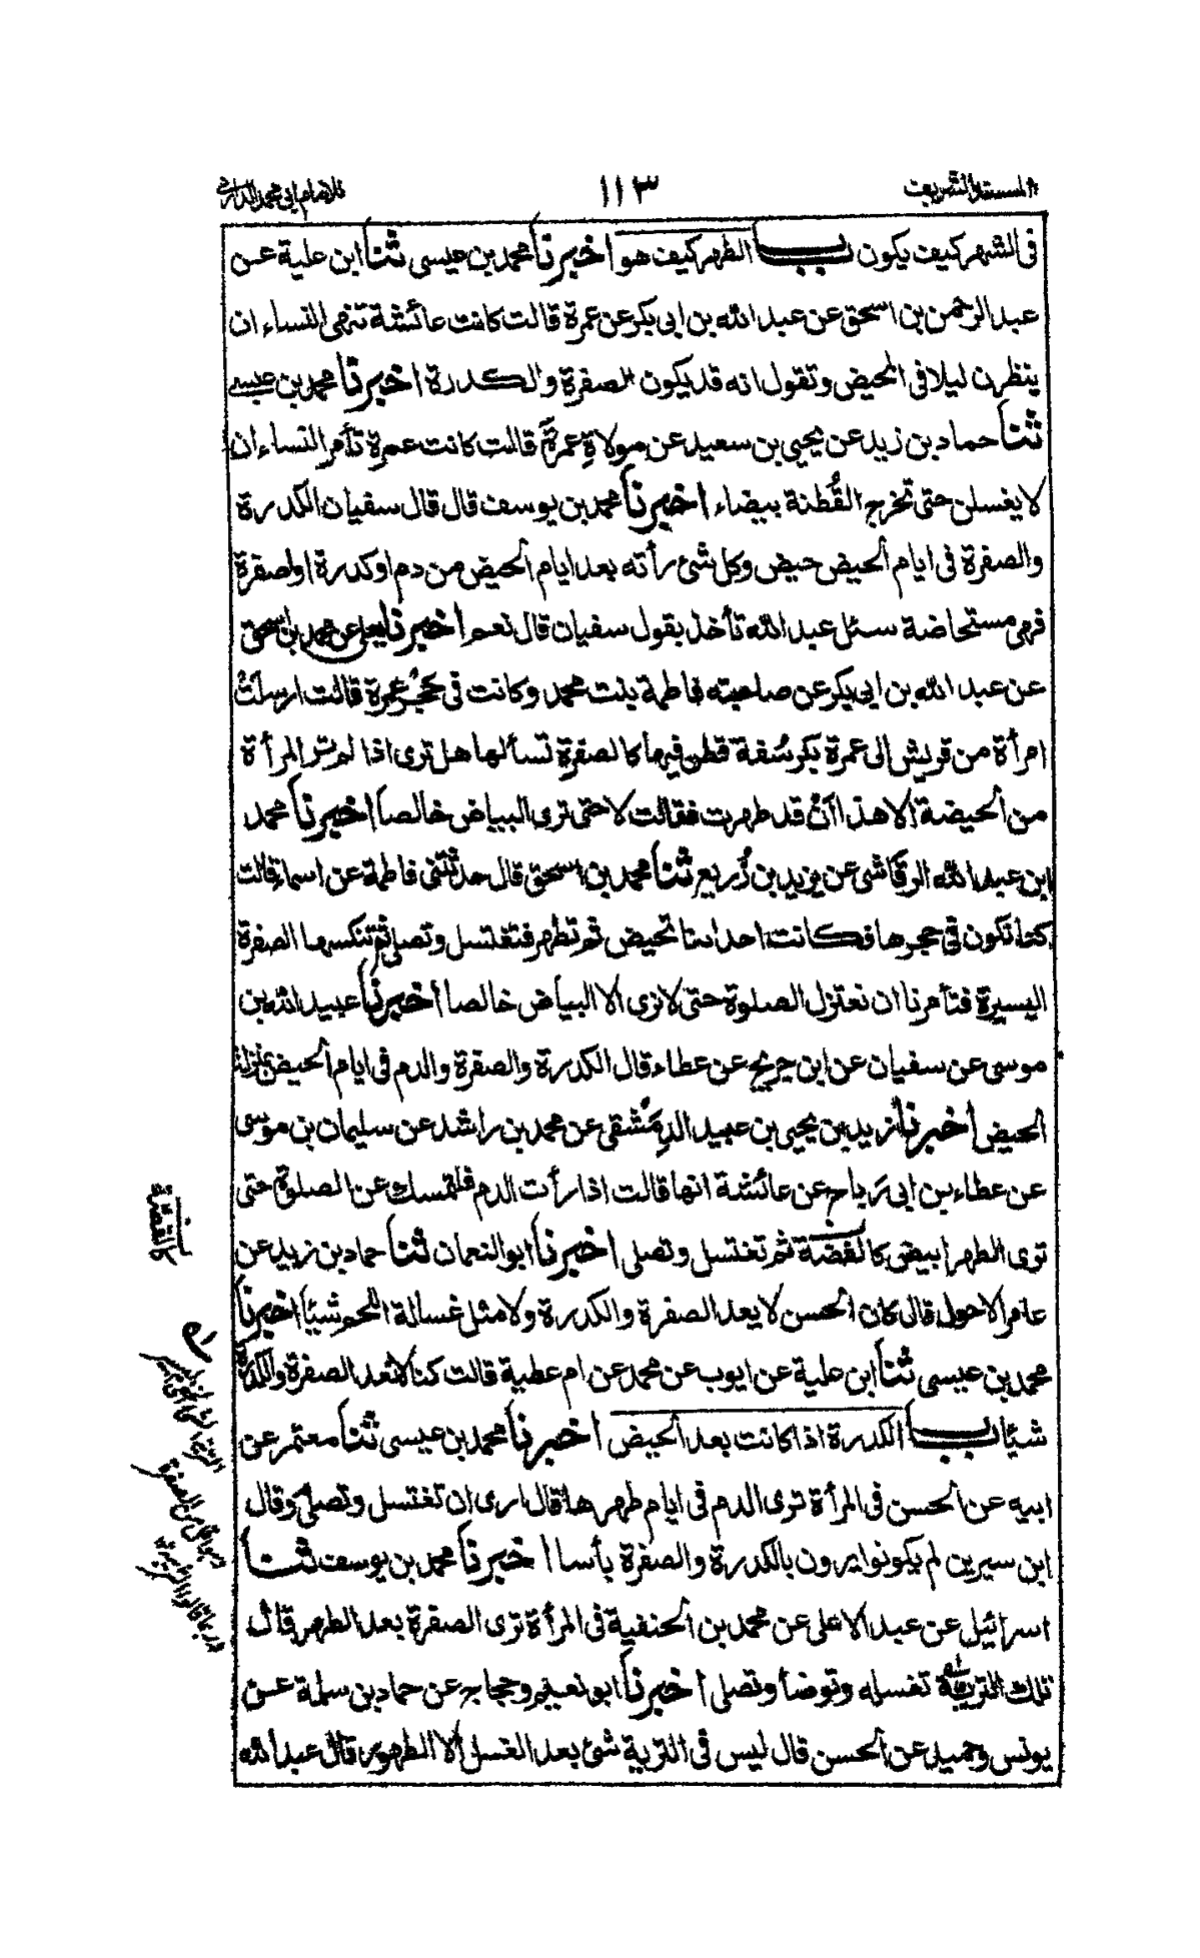 المسند الشريف
١١٣
للامام ابي محمد الدارمي
فى الشهر كيف يكون باب الطهر كيف هو اخبرنا محمد بن عيسى ثنا ابن علية عن
عبد الرحمن بن اسحق عن عبد الله بن ابى بكر عن عمرة قالت كانت عائشة تنهى النساء ان
ينظرن ليلا فى المحيض وتقول انه قد يكون الصفرة والكدرة اخبرنا محمد بن عيسى
ثنا حماد بن زيد عن يحيى بن سعيد عن مولاة عمرة قالت كانت عمرة تأمر النساء ان
لا يغسلن حتى تخرج القُطنة بيضاء اخبرنا محمد بن يوسف قال قال سفيان الكدرة
والصفرة فى ايام الحيض حيض وكل شئ رأته بعد ايام الحيض من دم او كدرة او صفرة
فهى مستحاضة سئل عبد الله تأخذ بقول سفيان قال نعم اخبرنا يعلى عن محمد بن اسحق
عن عبد الله بن ابى بكر عن صاحبته فاطمة بنت محمد وكانت فى حَجْر عمرة قالت ارسلَتْ
امرأة من قريش الى عمرة بكرسُفة قطن فيها كالصفرة تسألها هل ترى اذا لم تر المرأة
من الحيضة الا هذا اَنْ قد طهرت فقالت لا حتى ترى البياض خالصا اخبرنا محمد
ابن عبد الله الرقاشى عن يزيد بن زُريع ثنا محمد بن اسحق قال حدثتنى فاطمة عن اسماء قالت
كنا نكون فى حجرها فكانت احدانا تحيض ثم تطهر فتغتسل وتصلى ثم تنكسها الصفرة
اليسيرة فتأمرنا ان نعتزل الصلوة حتى لا نرى الا البياض خالصا اخبرنا عبيد الله بن
موسى عن سفيان عن ابن جريج عن عطاء قال الكدرة والصفرة والدم فى ايام الحيض بمنزلة
الحيض اخبرنا زيد بن يحيى بن عبيد الدِمَشقى عن محمد بن راشد عن سليمان بن موسى
عن عطاء بن ابى رَباح عن عائشة انها قالت اذا رأت الدم فلتمسك عن الصلوة حتى
ترى الطهر ابيض كالفضة ثم تغتسل وتصلى اخبرنا ابو النعمان ثنا حماد بن زيد عن
عامر الاحول قال كان الحسن لا يعد الصفرة والكدرة ولا مثل غسالة اللحم شيئا اخبرنا
محمد بن عيسى ثنا ابن علية عن ايوب عن محمد عن ام عطية قالت كنا لا نعد الصفرة والكدرة
شيئا باب الكدرة اذا كانت بعد الحيض اخبرنا محمد بن عيسى ثنا معتمر عن
ابيه عن الحسن فى المرأة ترى الدم فى ايام طهرها قال ارى ان تغتسل وتصلى وقال
ابن سيرين لم يكونوا يرون بالكدرة والصفرة بأسا اخبرنا محمد بن يوسف ثنا
اسرائيل عن عبد الاعلى عن محمد بن الحنفية فى المرأة ترى الصفرة بعد الطهر قال
تلك الترية تغسله وتوضأ وتصلى اخبرنا ابو نعيم وحجاج عن حماد بن سلمة عن
يونس وحميد عن الحسن قال ليس فى الترية شئ بعد الغسل الا الطهور قال عبد الله
كالقصّة